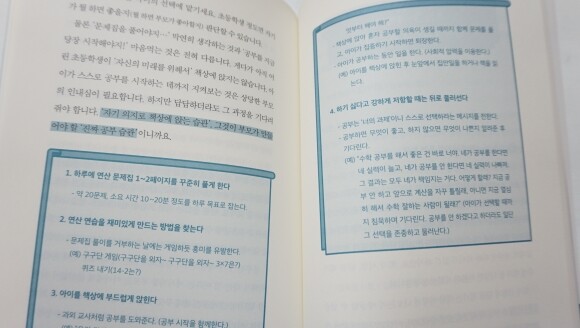 가 뭘 하면 좋을지(뭘 하면 부모가 좋아할지) 판단할 수 있습니다.
물론 '문제집을 풀어야지…' 막연히 생각하는 것과 '공부를 지금
당장 시작해야지!' 마음먹는 것은 전혀 다릅니다. 게다가 아직 어
린 초등학생이 '자신의 미래를 위해서' 책상에 앉지는 않습니다. 아
이가 스스로 공부를 시작하는 데까지 지켜보는 것은 상당한 부모
의 인내심이 필요합니다. 하지만 답답하더라도 그 과정을 기다려
줘야 합니다. '자기 의지로 책상에 앉는 습관', 그것이 부모가 만들
어야 할 '진짜 공부 습관'이니까요.
1. 하루에 연산 문제집 1~2페이지를 꾸준히 풀게 한다
- 약 20문제, 소요 시간 10~20분 정도를 하루 목표로 잡는다.
2. 연산 연습을 재미있게 만드는 방법을 찾는다
- 문제집 풀이를 거부하는 날에는 게임하듯 흥미를 유발한다.
(예) 구구단 게임(구구단을 외자~ 구구단을 외자~ 3×7은?)
퀴즈 내기(14-2는?)
3. 아이를 책상에 부드럽게 앉힌다
- 과외 교사처럼 공부를 도와준다. (공부 시작을 함께한다.)
- 책상에 같이 앉아 혼자 공부할 의욕이 생길 때까지 함께 문제를 풀
고, 아이가 집중하기 시작하면 퇴장한다.
- 아이가 공부하는 동안 일을 한다. (사회적 압력을 이용한다.)
(예) 아이를 책상에 앉힌 후 눈앞에서 집안일을 하거나 책을 읽
는다.
4. 하기 싫다고 강하게 저항할 때는 뒤로 물러선다
- 공부는 '너의 과제'이니 스스로 선택하라는 메시지를 전한다.
- 공부하면 무엇이 좋고, 하지 않으면 무엇이 나쁜지 알려준 후
기다린다.
(예) "수학 공부를 해서 좋은 건 바로 너야. 네가 공부를 한다면
네 실력이 늘고, 네가 공부를 안 한다면 네 실력이 나빠져.
그 결과는 모두 네가 책임지는 거다. 어떻게 할래? 지금 공
부 안 하고 앞으로 계산을 자꾸 틀릴래, 아니면 지금 결심
히 해서 수학 잘하는 사람이 될래?" (아이가 선택할 때까
지 침묵하며 기다린다. 공부를 안 하겠다고 하더라도 일단
그 선택을 존중하고 물러난다.)